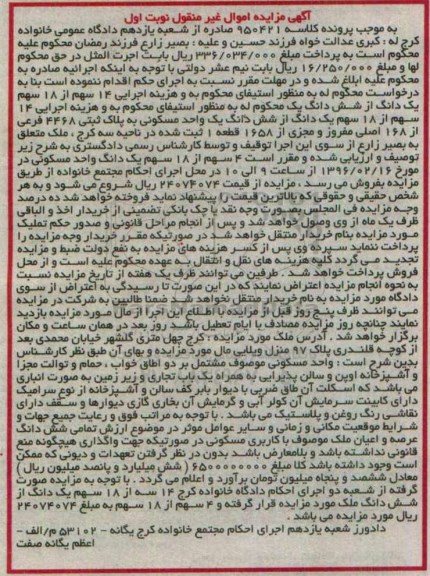 آگهی مزایده اموال غیر منقول نوبت اول
به موجب پرونده کلاسه ۹۵۰۴۲۱ صادره از شعبه یازدهم دادگاه عمومی خانواده
کرج له : کبری عدالت خواه فرزند حسین و علیه : بصیر زارع فرزند رمضان محکوم علیه
محکوم است به پرداخت مبلغ ۳۳۶/۰۳۴/۰۰۰ ریال بابت اجرت المثل در حق محکوم
لها و مبلغ ۱۶/۲۵۰/۰۰۰ ریال بابت نیم عشر دولتی با توجه به اینکه اجرائیه صادره به
محکوم علیه ابلاغ شده و در مهلت مقرر نسبت به اجرای حکم اقدام ننموده است بنا به
درخواست محکوم له به منظور استیفای محکوم به و هزینه اجرایی ۱۴ سهم از ۱۸ سهم
یک دانگ از شش دانگ یک محکوم له به منظور استیفای محکوم به و هزینه اجرایی ۱۴
سهم از ۱۸ سهم یک دانگ از شش دانگ یک واحد مسکونی به پلاک ثبتی ۴۴۶۸ فرعی
از ۱۶۸ اصلی مفروز و مجزی از ۱۶۵۸ قطعه ۱ ثبت شده در ناحیه سه کرج ، ملک متعلق
به بصیر زارع از سوی این اجرا توقیف و توسط کارشناس رسمی دادگستری به شرح زیر
توصیف و ارزیابی شده و مقرر است ۴ سهم از ۱۸ سهم یک دانگ واحد مسکونی در
مورخ ۱۳۹۶/۰۲/۱۶ از ساعت ۹ الی ۱۰ در محل اجرای احکام مجتمع خانواده از طریق
مزایده بفروش می رسد ، مزایده از قیمت ۲۴۰۷۴۰۷۴ ریال شروع می شود و به هر
شخص حقیقی و حقوقی که بالاترین قیمت را پیشنهاد نماید فروخته خواهد شد ده درصد
وجه مزایده فی المجلس بصورت وجه نقد یا چک بانکی تضمینی از خریدار اخذ و الباقی
ظرف یک ماه از وی وصول خواهد شد و پس از انجام مراحل قانونی و صدور حکم تملیک
مورد مزایده بنام خریدار منتقل خواهد شد در صورتیکه مقرر خریدار وجه مزایده را
پرداخت ننماید سپرده وی پس از کسر هزینه های مزایده به نفع دولت ضبط و مزایده
تجدید می گردد کلیه هزینه های نقل و انتقال به عهده محکوم علیه است و از محل
فروش پرداخت خواهد شد . طرفین می توانند ظرف یک هفته از تاریخ مزایده نسبت
به نحوه انجام مزایده اعتراض نمایند که در این صورت تا رسیدگی به اعتراض از سوی
دادگاه مورد مزایده به نام خریدار منتقل نخواهد شد ضمنا طالبین به شرکت در مزایده
می توانند ظرف پنج روز قبل از مزایده با اطلاع این اجرا از مال مورد مزایده بازدید
نمایند چنانچه روز مزایده مصادف با ایام تعطیل باشد روز بعد در همان ساعت و مکان
برگزار خواهد شد . آدرس ملک مورد مزایده : کرج چهل متری گلشهر خیابان محمدی بعد
از کوچه قلندری پلاک ۹۷ منزل ویلایی مال مورد مزایده و بهای آن طبق نظر کارشناس
بدین شرح است : واحد مسکونی موصوف مشتمل بر دو اطاق خواب ، حمام و توالت مجزا
و آشپزخانه اوپن و سالن پذیرایی به همراه یک باب تجاری و زیر زمین به صورت انباری
می باشد که اسکلت آن طاق ضربی با دیوار باربر کف سالن و آشپزخانه از نوع سرامیک
دارای کابینت سرمایش آن کولر آبی و گرمایش آن بخاری گازی دیوارها و سقف دارای
نقاشی رنگ روغن و پلاستیک می باشد . با توجه به مراتب فوق و رعایت جمیع جهات و
شرایط موقعیت مکانی و زمانی و سایر عوامل موثر در موضوع ارزش تمامی شش دانگ
عرصه و اعیان ملک موصوف با کاربری مسکونی در صورتیکه جهت واگذاری هیچگونه منع
قانونی نداشته باشد و بلامعارض باشد بدون در نظر گرفتن تعهدات و دیونی که ممکن
است وجود داشته باشد کلا مبلغ ۶۵۰۰۰۰۰۰۰۰ ( شش میلیارد و پانصد میلیون ریال )
معادل ششصد و پنجاه میلیون تومان برآورد و اعلام می گردد . با توجه به مزایده صورت
گرفته از شعبه دو اجرای احکام دادگاه خانواده کرج ۱۴ سه از ۱۸ سهم یک دانگ از
شش دانگ ملک مورد مزایده قرار گرفته و ۴ سهم از ۱۸ سهم به مبلغ ۲۴۰۷۴۰۷۴
ریال مورد مزایده می باشد .
دادورز شعبه یازدهم اجرای احکام مجتمع خانواده کرج یگانه - ۵۳۱۰۲ م/الف -
اعظم یگانه صفت